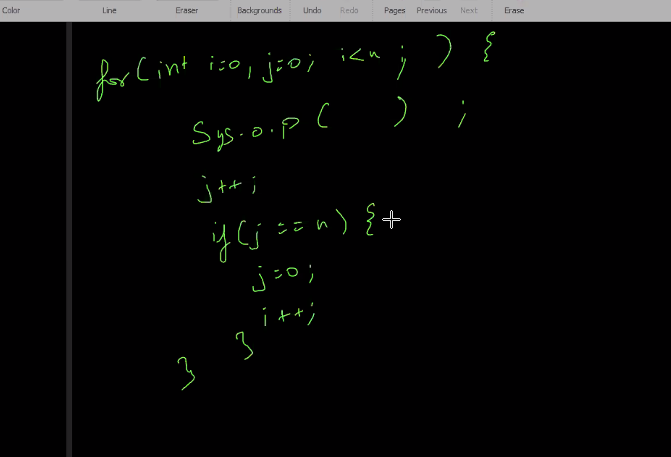 Color Line Eraser Backgrounds Undo Redo Pages Previous Next Erase
for(int i=0, j=0; i<n ; ) {
Sys.o.p( ) ;
j++;
if(j == n) {
j=0;
i++;
}
}